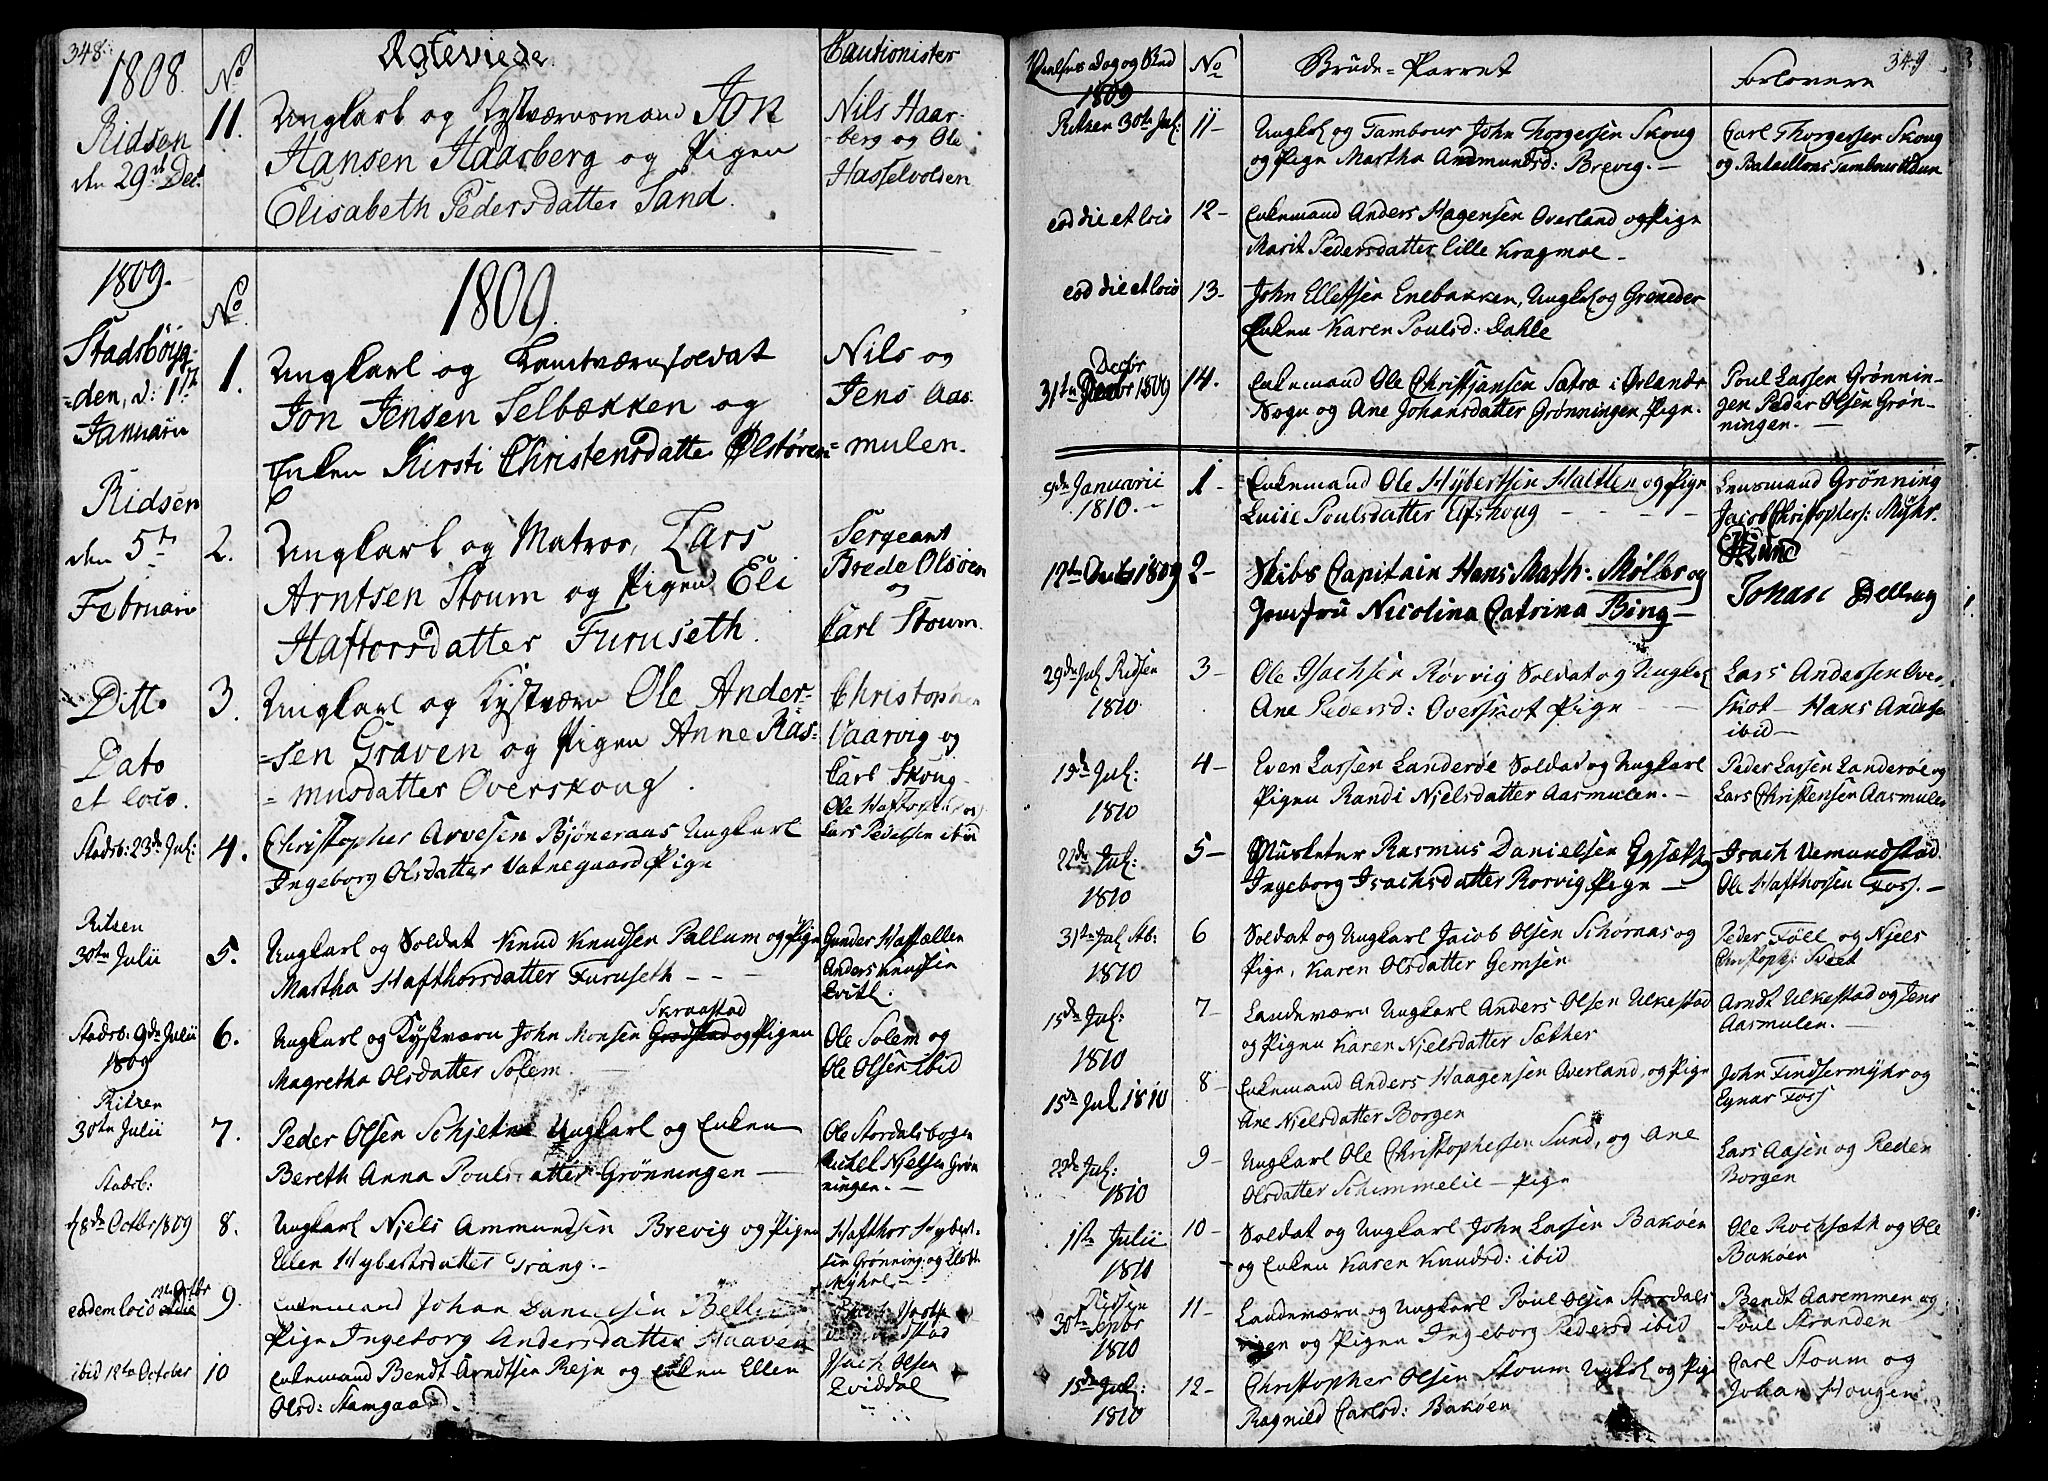 348.
1808.
No
Ægteviede
Cautionister
Ridsen
den 29de Dec.
11.
Ungkarl og Kystværnsmand Jon
Hansen Haarberg og Pigen
Elisabeth Pedersdatter Sand.
Nils Haar-
berg og Ole
Hasselvolden
1809.
No
1809.
Stadsbøyg-
=den, d: 1ste
Januari
1.
Ungkarl og Landværnsoldat
Jon Jensen Selbækken og
Enken Kirsti Christensdatter Ølstøren
Nils og
Jens Aas-
=mulen.
Ridsen
den 5te
Februari
2.
Ungkarl og Matros, Lars
Arntsen Stoum og Pigen Eli
Haftorsdatter Furuseth.
Sergeant
Brede Olsøen
og
Carl Stoum.
Ditto
Dato
et loco.
3.
Ungkarl og Kystværn Ole Ander-
=sen Graven og Pigen Anne Ras-
=musdatter Overskoug.
Christopher
Vaarvig og
Carl Skoug
Stadsb: 23de Jul:
4.
Christopher Arvesen Bjøneraas Ungkarl
Ingeborg Olsdatter Vatnegaard Pige
Lars Pedersen ibid
Ritsen
30te Julii
5.
Ungkarl og Soldat Knud Knudsen Pallum og Pige
Martha Hafthorsdatter Furuseth - -
Gunder Hafsællen
Anders Knudsen
Stadsb: 9de Julii
1809
6.
Skraastad
Ungkarl og Kystværn John Monsen og Pigen
Magretha Olsdatter Solem
Ole Solem og
Ole Olsen ibid
Ritzen
30te Julii
7.
Peder Olsen Schjetne Ungkarl og Enken
Bereth Anna Poulsdatter Grønningen —
Ole Stordalsbogen
Michel Njelsen Grøn
ningen. —
Stadsb:
d 8de Octbr 1809
8.
Ungkarl Niels Ammundsen Brevig og Pigen
Ellen Hybertsdatter Trang. -
Hafthor Hybert-
sen Grønning og
Myhre
eodem loco
9.
Enkemand Johan Danielsen
Pige Ingeborg Andersdatter Haaven
ibid 12te October
10
Enkemand Bendt Arndtsen Rejn og Enken Ellen
Olsd: Stamgaard.
Isach Olsen
Qviddal
349
Vielses Dag og Sted
No
Brude=Parret
Forlovere
1809
Ritzen 30te Jul:
11-
Ungkl og Tambour John Thorgersen Skoug
og Pige Martha Andmundsd: Brevig. —
Carl Thorgersen Skoug
og Batallions Tambour
eod die et loco
12-
Enkemand Anders Hagensen Overland og Pige
Marit Pedersdatter lille Kragmoe -
eod die et loco
13-
John Ellefsen Enebakken, Ungkl og Grenader
Enken Karen Poulsd: Dahle
Decbr
31te 1809
14.
Enkemand Ole Christjansen Sætra i Ørlands
Sogn og Ane Johansdatter Grønningen, Pige.
Poul Larsen Grønnin-
gen Peder Olsen Grøn-
ningen. —
9de Januarii
1810. -
1-
Enkemand Ole Hybertsen Haltlen og Pige
Lucie Poulsdatter Elfshoug - - -
Lensmand Grønning
Jacob Christophers: Myhr.
12te 1809
2-
Skibs Capitain Hans Math: Møller og
Jomfru Nicolina Catrina Bing —
Hund
Johan
29de Jul Ridsen
1810.
3-
Ole Isachsen Rørvig Soldat og Ungkl
Ane Pedersd: Overskot Pige
Lars Andersen Over-
skot — Hans Andersen
ibid —
19de Jul:
1810
4-
Even Larsen Landerøe Soldat og Ungkarl
Pigen Randi Njelsdatter Aasmulen. —
Peder Larsen Landerøe og
Lars Christensen Aasmulen
22de Jul:
1810
5-
Musketer Rasmus Danielsen
Ingeborg Isachsdatter Rorvig Pige —
Isach Vemundstad
Ole Hafthorsen Foss. —
31te Jul Stb:
1810
6
Soldat og Ungkarl Jacob Olsen Schørnas og
Pige, Karen Olsdatter Gemsen
Peder Föll og Njels
Christoph: Sveet
15de Jul:
1810
7-
Landeværn Ungkarl Anders Olsen Ulkestad
og Pigen Karen Njelsdatter Sæther
Arndt Ulkestad og Jens
Aasmulen. —
15de Jul 1810
8-
Enkemand Anders Haagensen Overland, og Pige
Ane Njelsdatter Borgen
John Findsermyhr og
Eynar Foss
22de Jul:
1810
9-
Ungkarl Ole Christophersen Sund, og Ane
Olsdatter Schimmelie — Pige
Lars Aasen og Peder
Borgen
1ste Julii
1810
10-
Soldat og Ungkarl John Larsen Bakøen
og Enken Karen Knudsd: ibid
Ole Rochsæth og Ole
Bakøen
Ridsen
30te Septbr
1810
11-
Landeværn og Ungkarl Poul Olsen Stordals
vigen og Pigen Ingeborg Pedersd ibid
Bendt Aaremmen og
Poul Stranden
15de Jul:
1810
12-
Christopher Olsen Stoum Ungkl og Pige
Ragnild Carlsd: Bakøen
Carl Stoum og
Johan Hougen